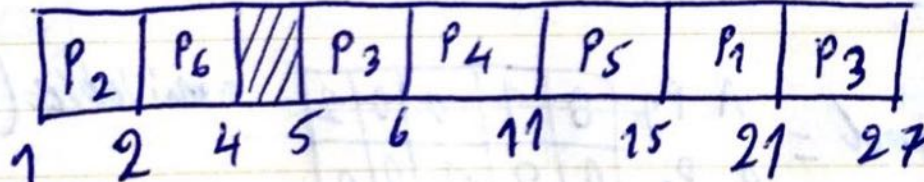 P2 P6 P3 P4 P5 P1 P3
1 2 4 5 6 11 15 21 27